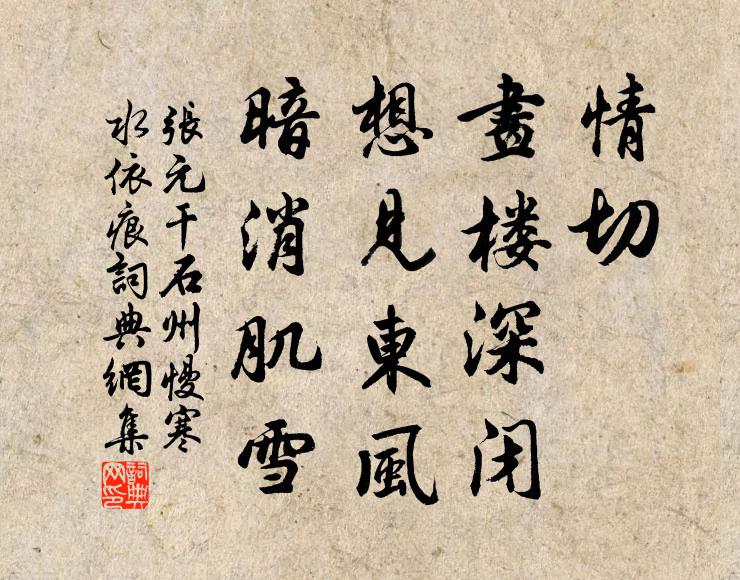 情切
畫楼深闭
想見東風
暗消肌雪
張元干石州慢寒
水依痕詞典網集
詞典
网印